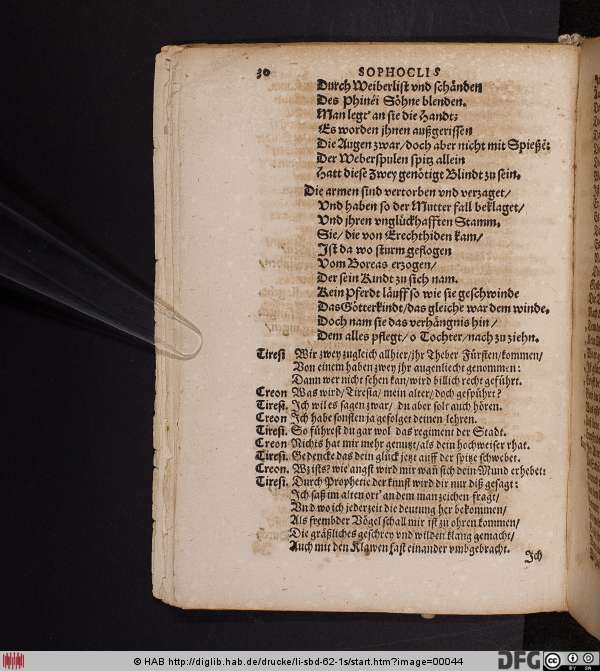 30 SOPHOCLIS
Durch Weiberlist vnd schänden
Des Phinëi Söhne blenden.
Man legt' an sie die Handt:
Es worden jhnen außgerissen
Die Augen zwar/ doch aber nicht mit Spießẽ:
Der Weberspulen spitz allein
Hatt diese Zwey genötigt Blindt zu sein.
Die armen sind vertorben vnd verzaget/
Vnd haben so der Mutter fall beklaget/
Vnd jhren vnglückhafften Stamm.
Sie/ die von Erechthiden kam/
Jst da wo sturm geflogen
Vom Boreas erzogen/
Der sein Kindt zu sich nam.
Kein Pferdt läufft so wie sie geschwinde
Das Götterkindt/ das gleiche war dem winde.
Doch nam sie das verhängnis hin/
Dem alles pflegt/ o Tochter/ nach zu ziehn.
Tiresi Wir zwey zugleich allhier/ jhr Theber Fürsten/ kommen/
Von einem haben zwey jhr augenliecht genommen:
Dann wer nicht sehen kan/ wird billich recht geführt.
Creon Was wird/ Tiresia/ mein alter/ doch gespührt?
Tiresi. Jch wil es sagen zwar/ du aber solt auch hören.
Creon Jch habe sonsten ja gefolget deinen lehren.
Tiresi. So führest du gar wol das regiment der Stadt.
Creon Nichts hat mir mehr genutzt/ als dein hochweiser rhat.
Tiresi. Gedencke das dein glück jetzt auff der spitze schwebet.
Creon. Wz ists? wie angst wird mir wañ sich dein Mund erhebet:
Tiresi. Durch Prophetie der kunst wird dir nur diß gesagt:
Jch saß im alten ort' an dem man zeichen fragt/
Vnd wo ich jederzeit die deutung her bekommen/
Als frembder Vögel schall mir ist zu ohren kommen/
Die gräßliches geschrey vnd wilden klang gemacht/
Auch mit den Klawen fast einander vmbgebracht.
Jch
© HAB http://diglib.hab.de/drucke/li-sbd-62-1s/start.htm?image=00044
DFG
cc BY SA